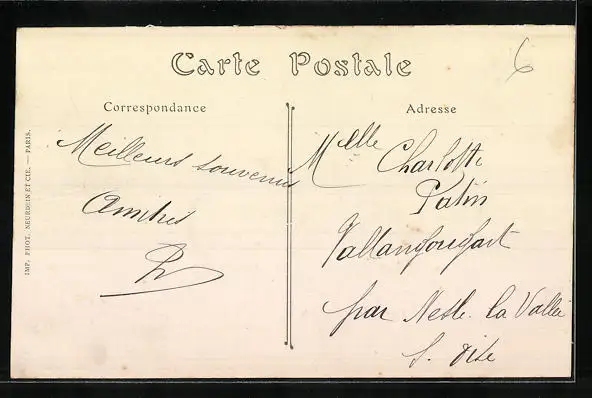 Carte Postale
6
Correspondance
Adresse
Meilleurs souvenirs
Amitiés
Melle Charlotte
Patin
Vallangoujart
par Nesle-la Vallée
S. Oise
IMP. PHOT. NEURDEIN ET CIE. — PARIS.